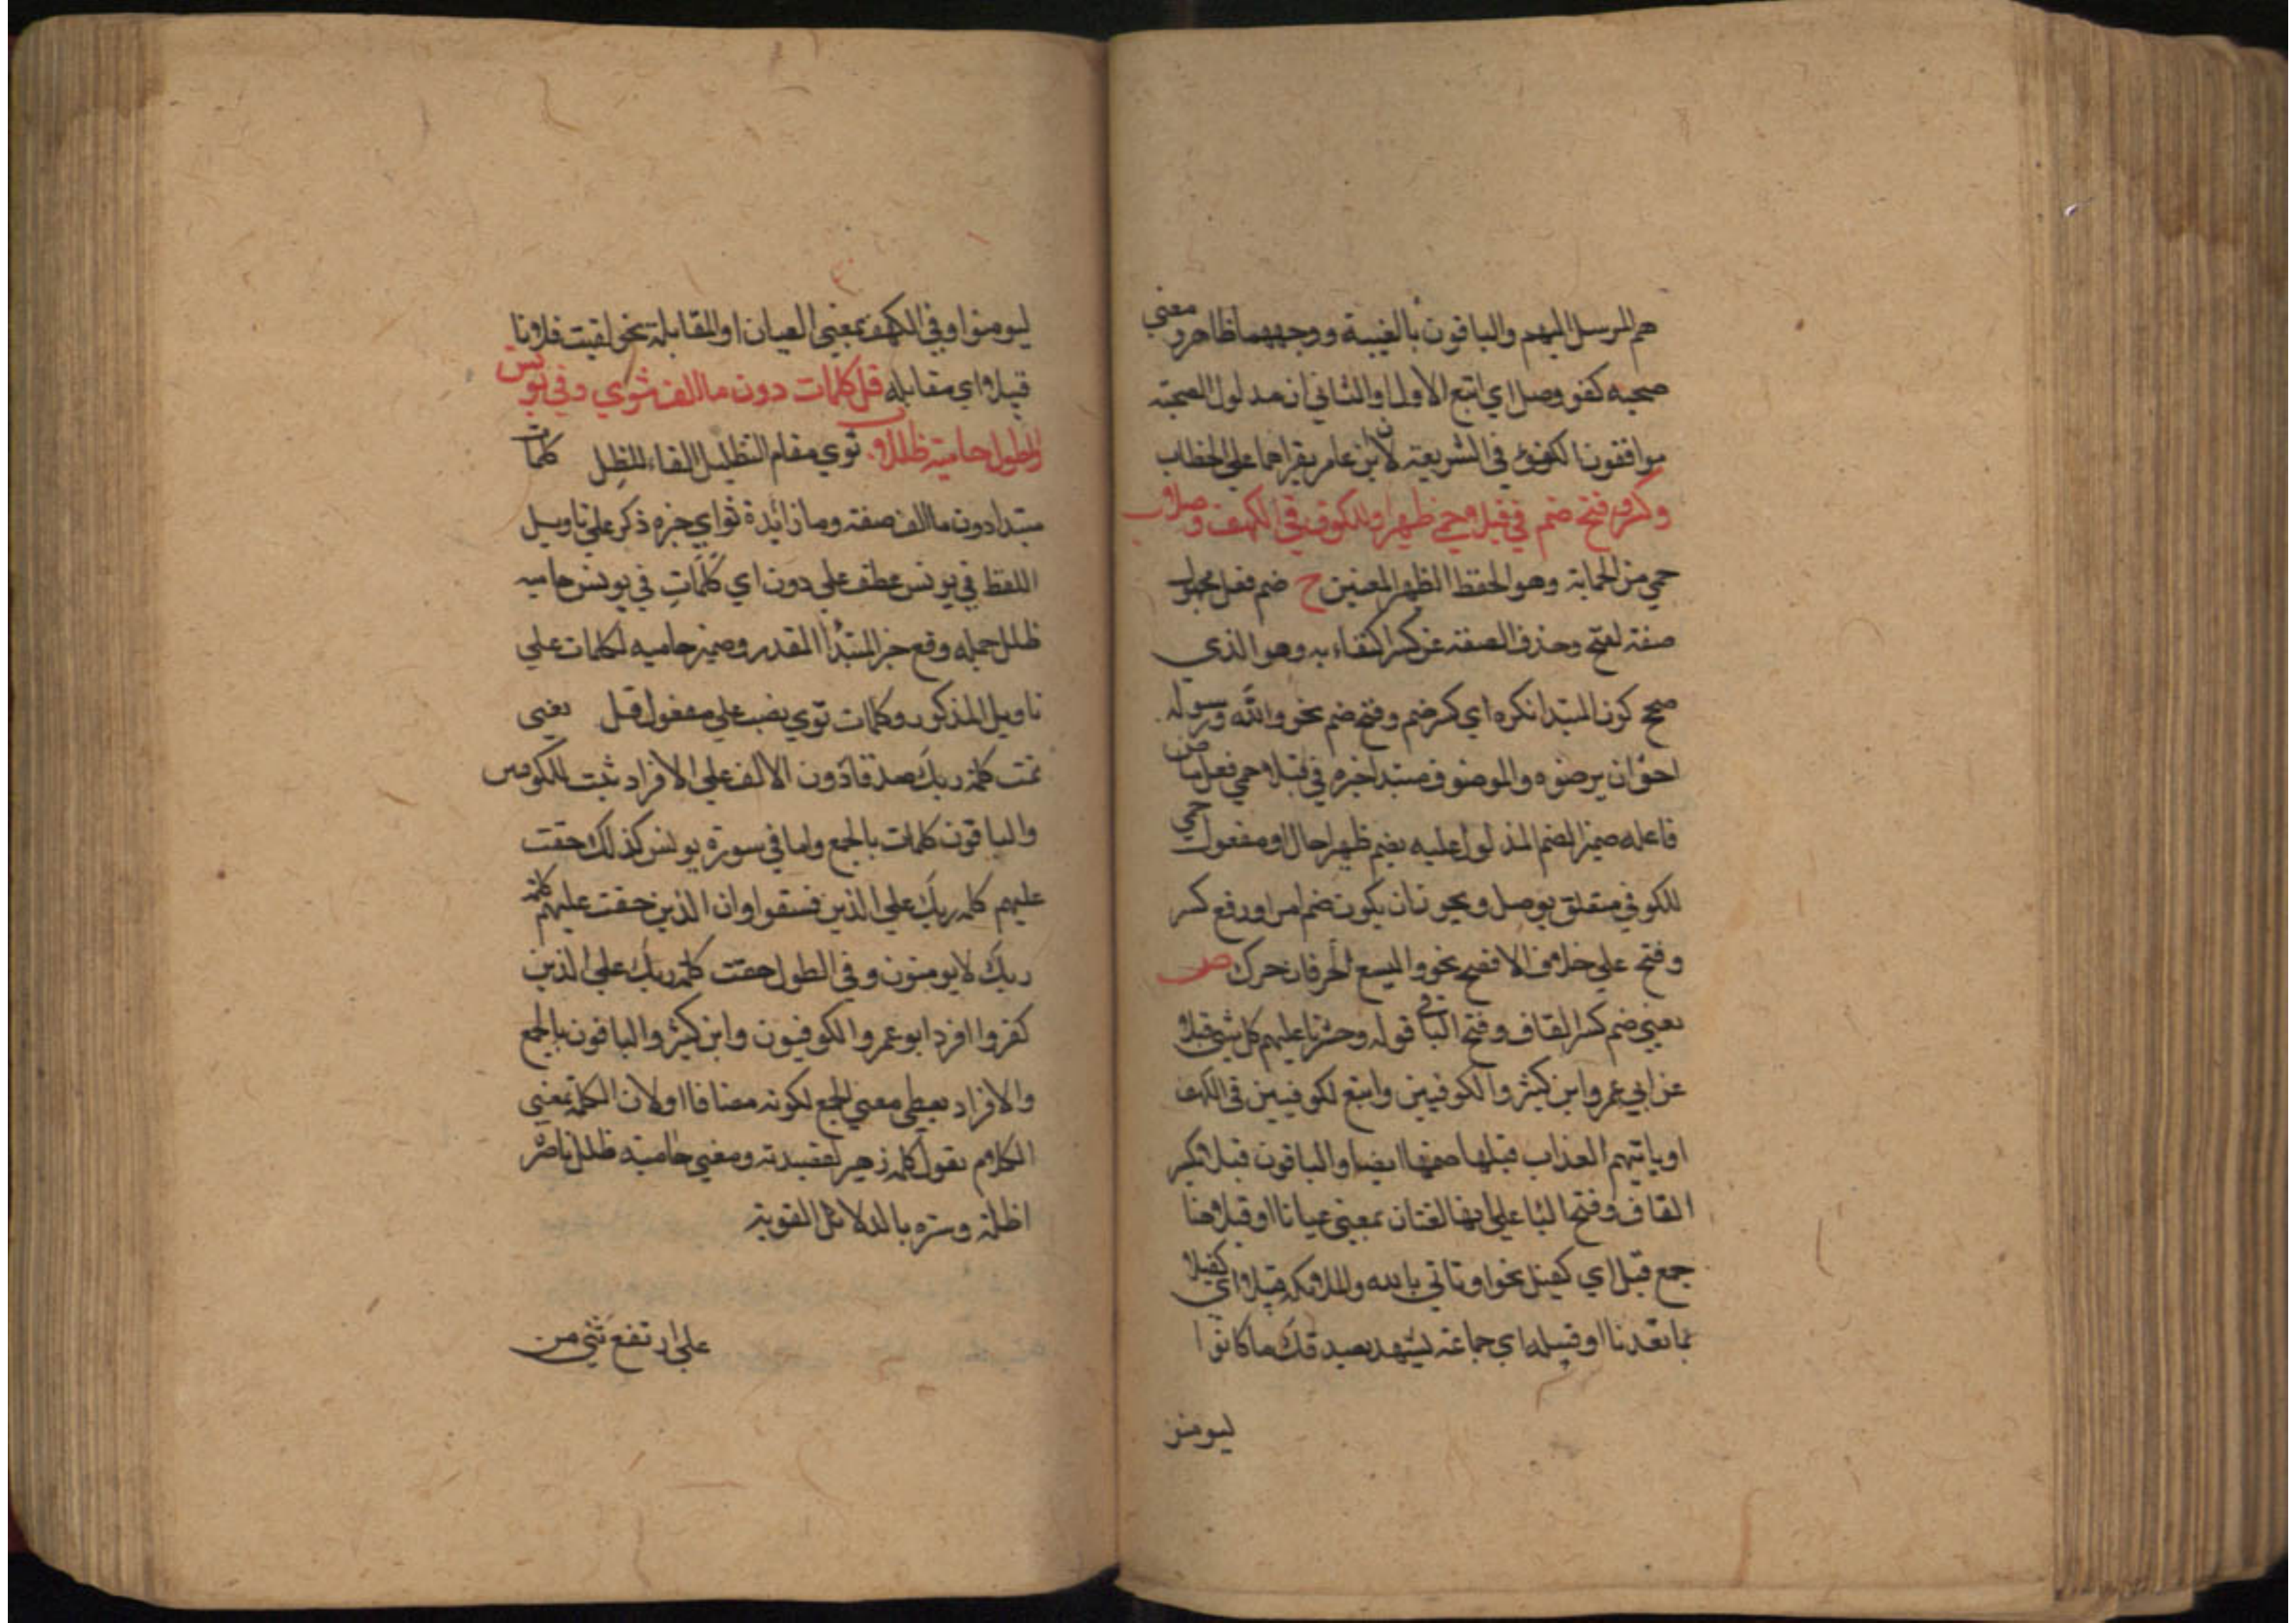 هم المرسل اليهم والباقون بالغيبة ووجههما ظاهر ومعنى
صحبه كفو وصل اي اتبع الاول والثاني ان مدلول الصحبة
موافقون لكفؤ في الشريعة لان ابن عامر يقراهما علي الخطاب
وكسر وفتح ضم في قبلا حمي ظهيرا وللكوفي في الكهف وصلا
حمي من الحماية وهو الحفظ الظهير المعين ح ضم فعل مجهول
صفته لفتح وحذف الصفة عن كسر اكتفاء به وهو الذي
صحح كون المبتدا نكره اي كسر ضم وفتح ضم نحو والله ورسوله
احق ان يرضوه والموصوف مبتدا خبره في قبلا حمي فعل ماض
فاعله ضمير الضم المدلول عليه بضم ظهيرا حال او مفعول حمي
للكوفي متعلق بوصل ويجوز ان يكون ضم امرا ورفع كسر
وفتح علي خلاف الافصح نحو واليسع الحرفان حرك ص
يعني ضم كسر القاف وفتح البا في قوله وحشرنا عليهم كل شي قبلا
عن ابي عمرو وابن كثير والكوفيين واتبع لكوفيين في الكهف
او ياتيهم العذاب قبلا بضمها ايضا والباقون قبلا بكسر
القاف وفتح البا علي انها لغتان بمعني عيانا او قبلا هنا
جمع قبيل اي كفيل نحو او تاتي بالله والملائكة قبيلا اي كفيلا
بما تعدنا او قبيله اي جماعة يشهد بصدقك ما كانوا
ليومنو
ليومنوا وفي الكهف بمعني العيان او المقابلة نحو لقيت فلانا
قبلا اي مقابله وقل كلمات دون ما الف ثوي وفي يونس
والطول حاميه ظللا ب ثوي مقام التظليل القاء الظل كلمات
مبتدا دون ما الف صفته وما زائدة ثوا اي خبره ذكر علي تاويل
اللفظ في يونس عطف علي دون اي كلمات في يونس حاميه
ظلل جمله وقع خبر المبتدا المقدر وضمير حاميه لكلمات علي
تاويل المذكور وكلمات ثوي نصب علي مفعول قل يعني
تمت كلمة ربك صدقا دون الالف علي الافراد ثبت للكوفيين
والباقون كلمات بالجمع واما في سورة يونس كذلك حقت
عليهم كلمه ربك علي الذين فسقوا وان الذين حقت عليهم كلمة
ربك لا يومنون وفي الطول حقت كلمة ربك علي الذين
كفروا افرد ابو عمرو والكوفيون وابن كثير والباقون بالجمع
والافراد يعطي معني الجمع لكونه مضافا او لان الكلمة بمعني
الكلام تقول كلمة زهير لقصيدته ومعني حاميه ظلل ناصره
اظله وستره بالدلائل القوية
علي ارتفع ثني من